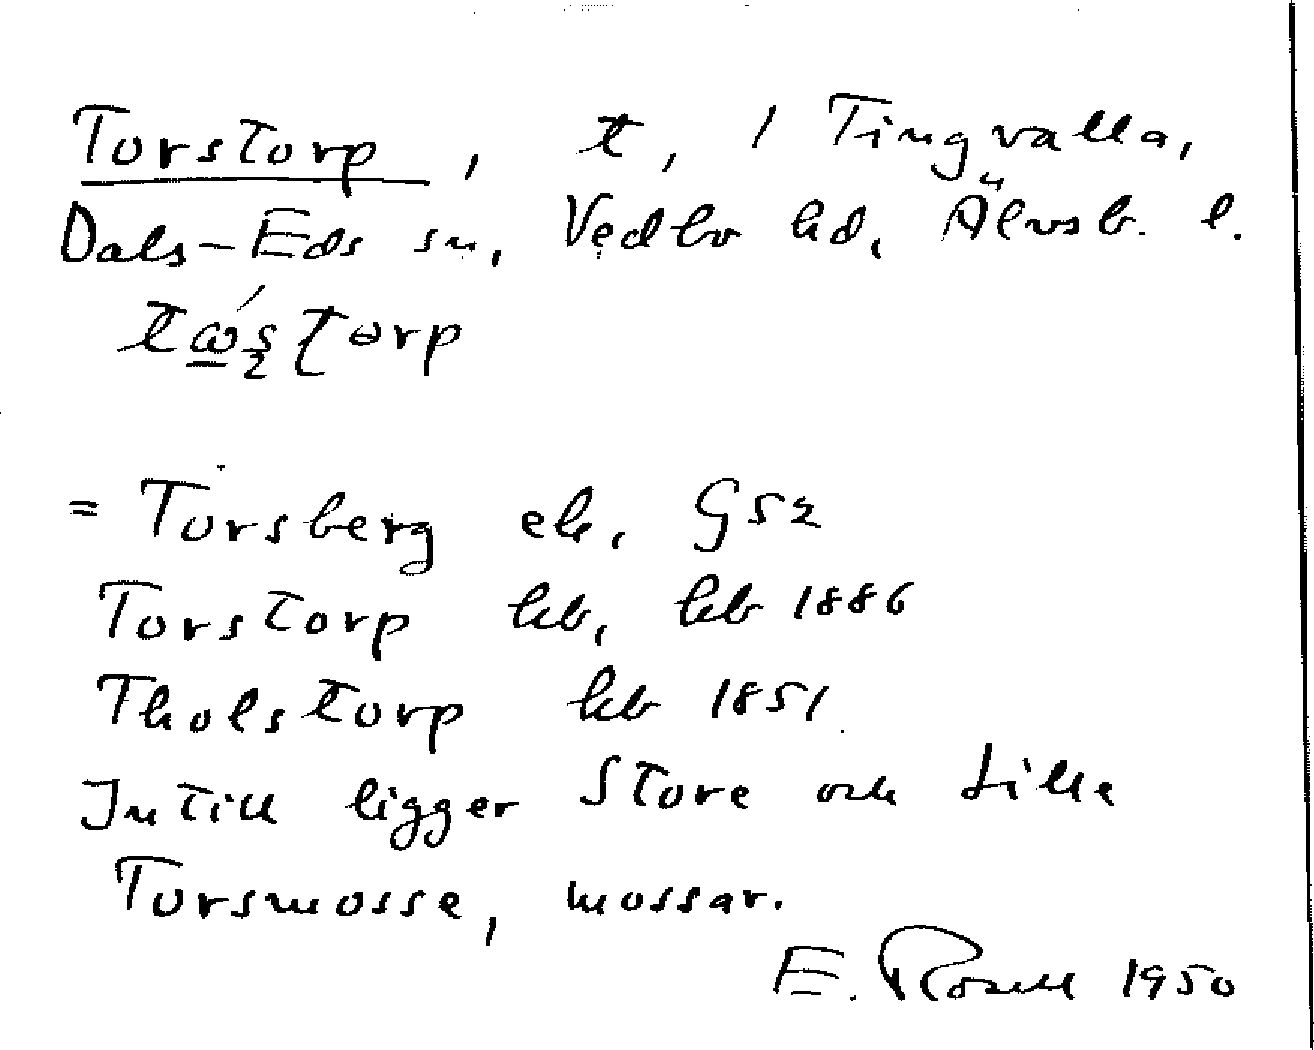 Torstorp, t, 1 Tingvalla,
Dals-Eds sn, Vedbo hd, Älvsb. l.
= Torsberg ek, G52
Torstorp hb, kb 1886
Tholstorp kb 1851
Intill ligger Store och Lille
Torsmosse, mossar.
E. Rosell 1950